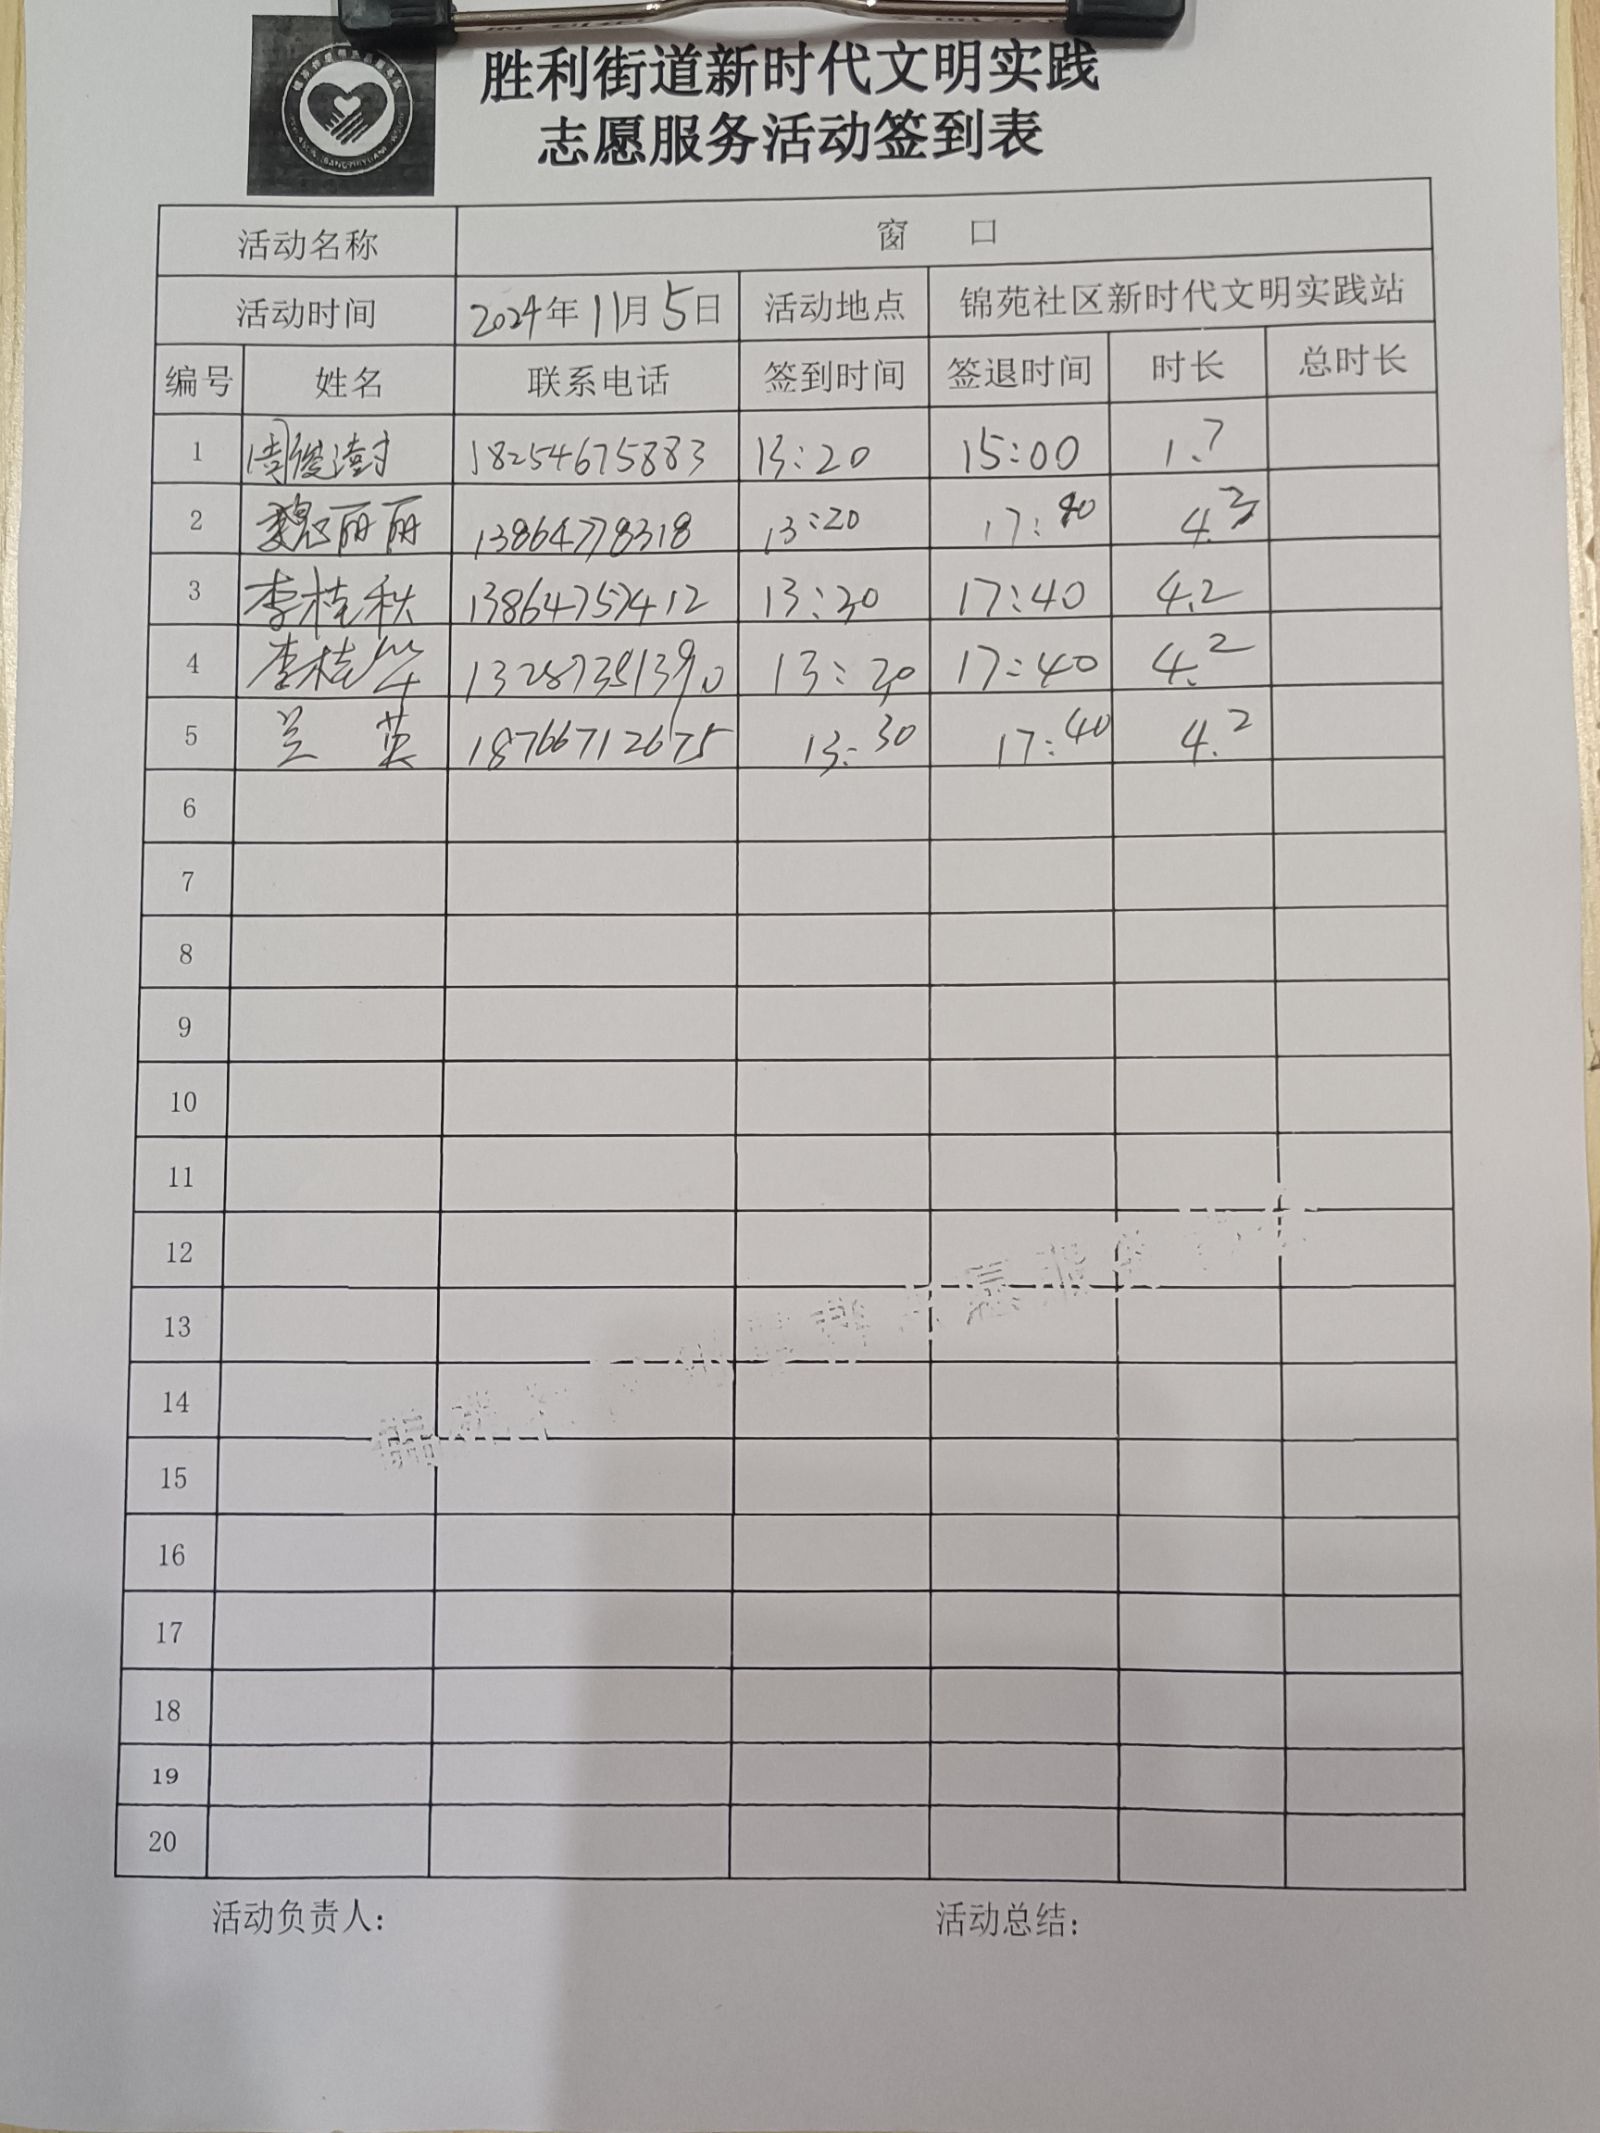 胜利街道新时代文明实践
志愿服务活动签到表
活动名称 窗 口
活动时间 2024年11月5日 活动地点 锦苑社区新时代文明实践站
编号 姓名 联系电话 签到时间 签退时间 时长 总时长
1 周俊澍 18254675883 13:20 15:00 1.7
2 魏丽丽 13864778318 13:20 17:40 4.3
3 李桂秋 13864757412 13:30 17:40 4.2
4 李桂华 13287351390 13:30 17:40 4.2
5 兰英 18766712675 13:30 17:40 4.2
6
7
8
9
10
11
12
13
14
15
16
17
18
19
20
活动负责人: 活动总结: